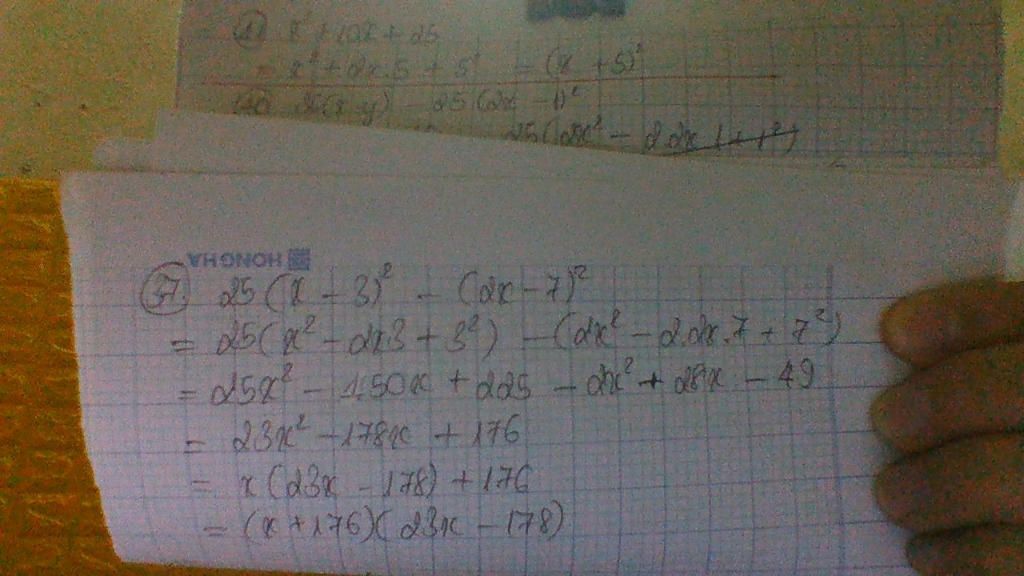 (41) x² + 10x + 25
= x² + 2x.5 + 5² = (x + 5)²
(x-y) - 25(2x - 1)²
25(2x² - 2.2x.1 + 1²)
HONGHA
(37). 25(x - 3)² - (2x - 7)²
= 25(x² - 2x3 + 3²) - (2x² - 2.2x.7 + 7²)
= 25x² - 150x + 225 - 2x² + 28x - 49
= 23x² - 178x + 176
= x(23x - 178) + 176
= (x + 176)(23x - 178)